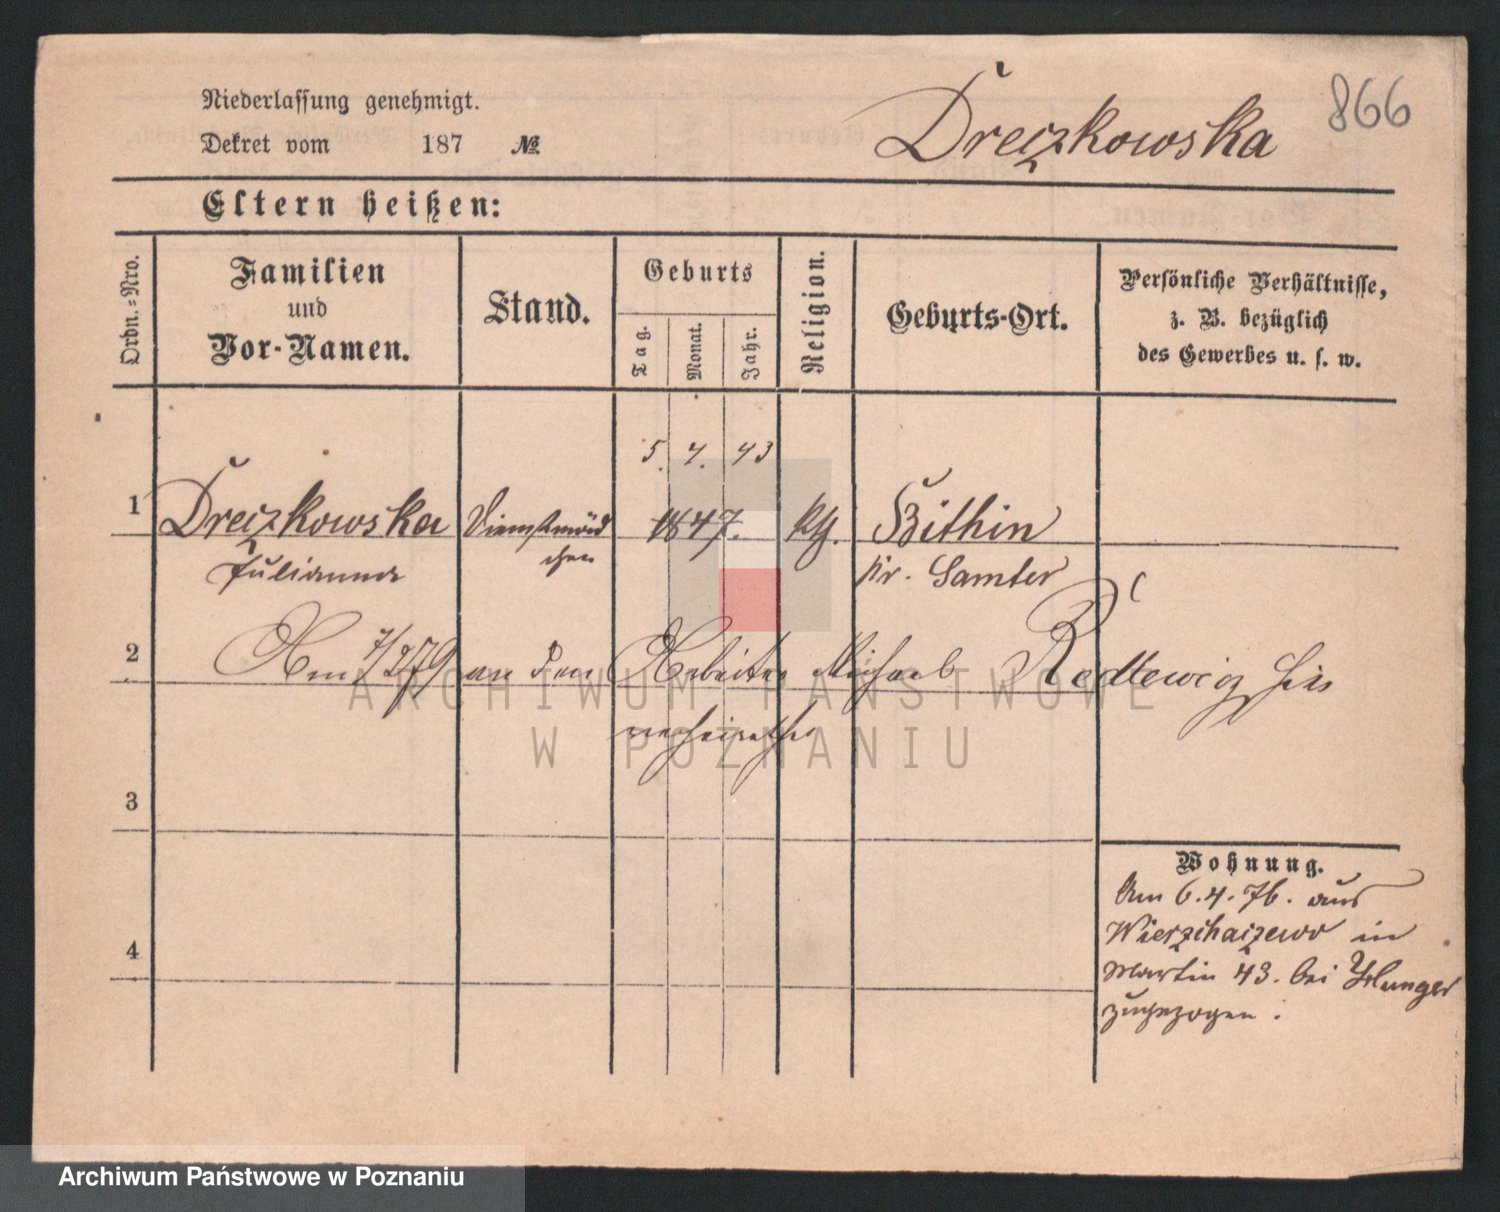 866
Niederlassung genehmigt.
Dekret vom 187 №
Dreczkowska
Eltern heißen:
Ordn.=Nro.
Familien
und
Vor-Namen.
Stand.
Geburts
Tag.
Monat.
Jahr.
Religion.
Geburts-Ort.
Persönliche Verhältnisse,
z. B. bezüglich
des Gewerbes u. s. w.
5. 4. 43
1 Dreczkowska Dienstmäd 1847. kth. Bithin
Julianna chen kr. Samter
2 Am 7/2 79 an den Arbeiter Michael hier
verheirathet
3
Wohnung.
Am 6.4.76. aus
in
4
Martin 43. bei
zugezogen.
ARCHIWUM PAŃSTWOWE
W POZNANIU
Archiwum Państwowe w Poznaniu